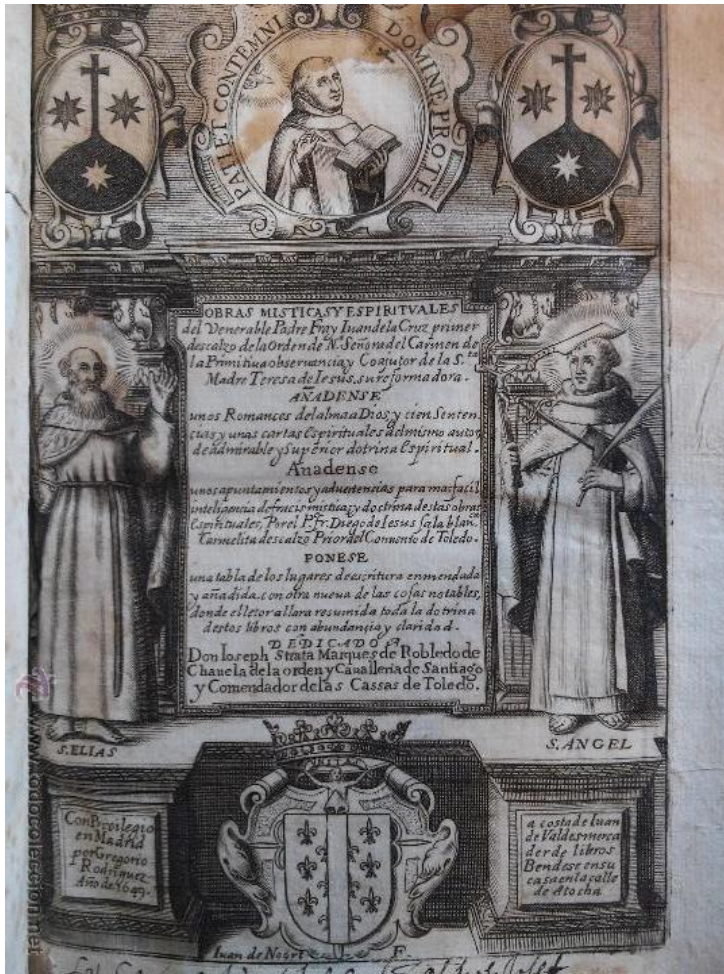 PATI ET CONTEMNI DOMINE PRO TE
OBRAS MISTICAS Y ESPIRITVALES
del Venerable Padre Fray Iuan de la Cruz primer
descalzo de la Orden de N. Señora del Carmen de
la Primitiua obseruancia y Coajutor de la S.ta
Madre Teresa de Iesus, su reformadora.
AÑADENSE
unos Romances del alma a Dios y cien Senten
cias y unas cartas Espirituales del mismo autor
de admirable y Superior dotrina Espiritual.
Añadense
unos apuntamientos y aduertencias para mas facil
inteligencia de frasis misticas y doctrina destas obras
Espirituales, Por el P. Fr. Diego de Iesus
Carmelita descalzo Prior del Conuento de Toledo.
PONESE
una tabla de los lugares de escritura enmendada
y añadida, con otra nueua de las cosas notables,
donde el letor allara resumida toda la dotrina
destos libros con abundancia y claridad.
DEDICADO A
Don Ioseph Strata Marques de Robledo de
Chauela de la orden y Cauallería de Santiago
y Comendador de las Cassas de Toledo.
S. ELIAS
S. ANGEL
Con Privilegio
en Madrid
por Gregorio
Rodriguez
Año de 1649.
a costa de Iuan
de Valdes merca
der de libros
Bendese en su
casa en la calle
de Atocha
Iuan de Noort F.
www.todocoleccion.net